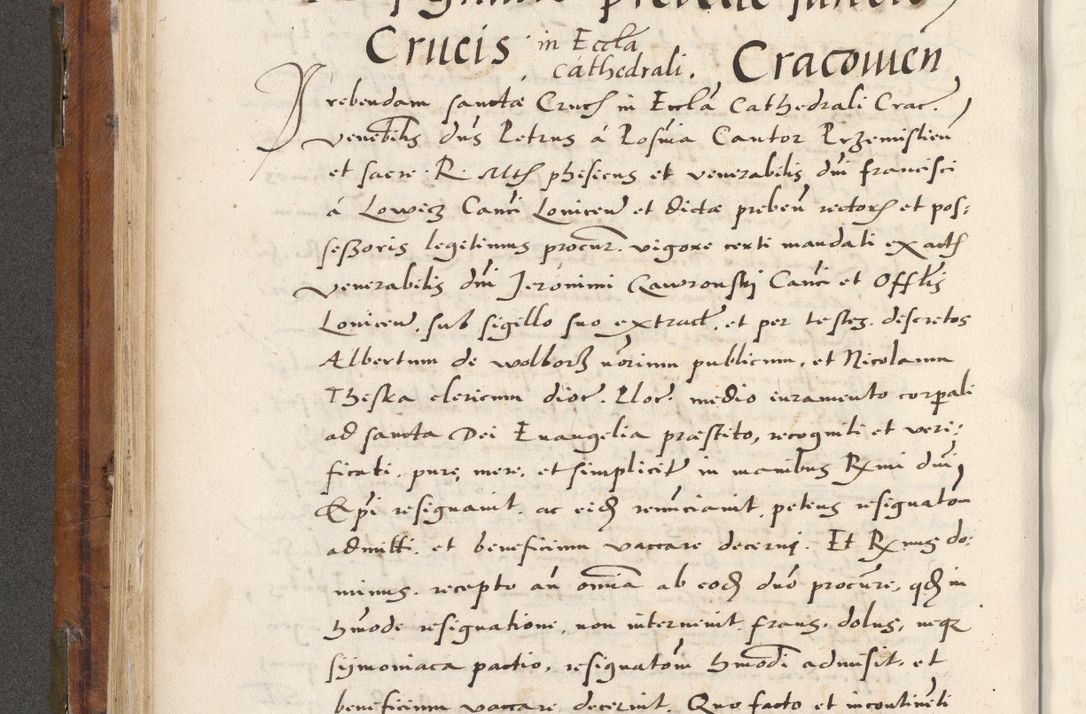 Crucis in Eccla Cathedrali. Cracouien
Prebendam sanctæ Cruc in Eccla Cathedrali Crac.
venebilis dns Petrus á Posnia Cantor Przemislien
et sacre R. Mts phisicus et venerabilis dni Francisci
á Lowicz Canci Louicen et dictæ preben rectoris et pos:
seßoris legitimus procur. vigore certi mandati ex actis
venerabilis dni Jeronimi Gawronskij Canci et Offlis
Louicen, sub sigello suo extract, et per testes discretos
Albertum de Wolborz norium publicum, et Nicolaum
Theska clericum dioc. Ploc. medio iuramento corporali
ad sancta Dei Euangelia præstito, recogniti et veri:
ficati. pure, mere, et simpliciter in manibus Rxmi dni
Epi resignauit. ac eidem renunciauit, petens resignatom
admitti. et beneficium vaccare decerni. Et Rxmus do:
minus. recepto an omia ab eodem dno procure, qd in
hmode resignatione, non interuenit fraus, dolus, neque
sijmoniaca pactio, resignatom hmodi admisit, et
beneficium vaccare decerint. Quo facto et incontineti